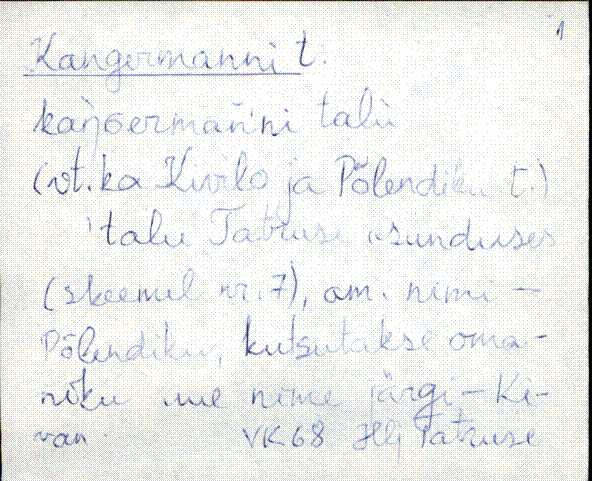 1
Kangermanni t.
talu
(vt. ka Kivilo ja Põlendiku t.)
'talu Tatruse asunduses
(skeemil nr. 7), am. nimi –
Põlendiku, kutsutakse oma-
niku nime järgi – Ki-
VK68 Hlj Tatruse